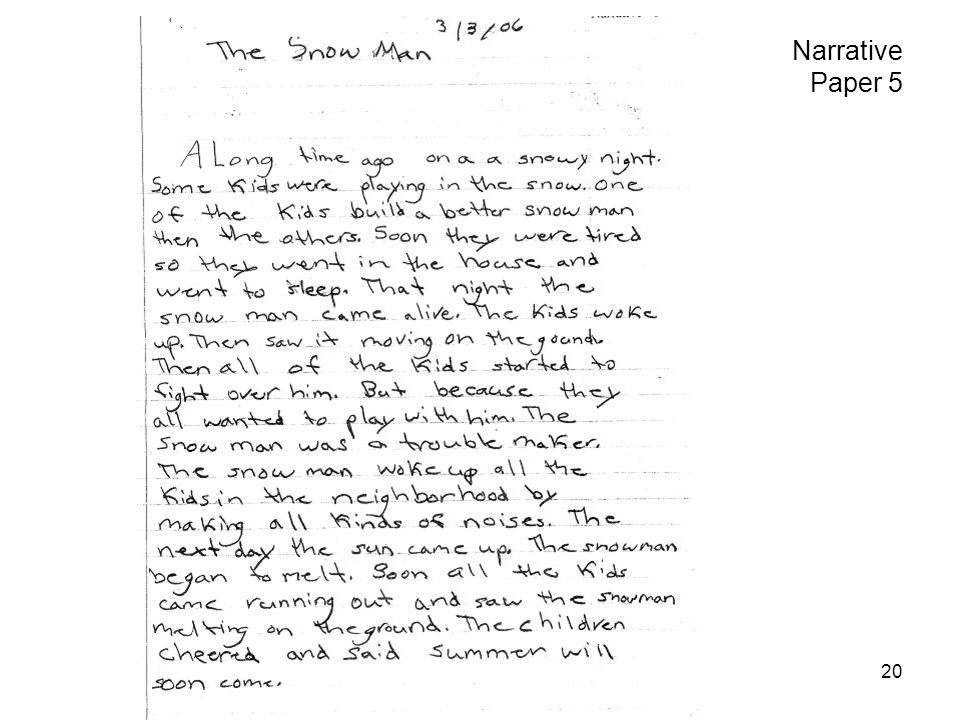 3/3/06
The Snow Man
Narrative
Paper 5
A Long time ago on a a snowy night.
Some kids were playing in the snow. One
of the kids build a better snow man
then the others. Soon they were tired
so they went in the house and
went to sleep. That night the
snow man came alive. The kids woke
up. Then saw it moving on the gound.
Then all of the kids started to
fight over him. But because they
all wanted to play with him. The
snow man was a trouble maker.
The snow man woke up all the
kids in the neighborhood by
making all kinds of noises. The
next day the sun came up. The snowman
began to melt. Soon all the kids
came running out and saw the snowman
melting on the ground. The children
cheered and said summer will
soon come.
20